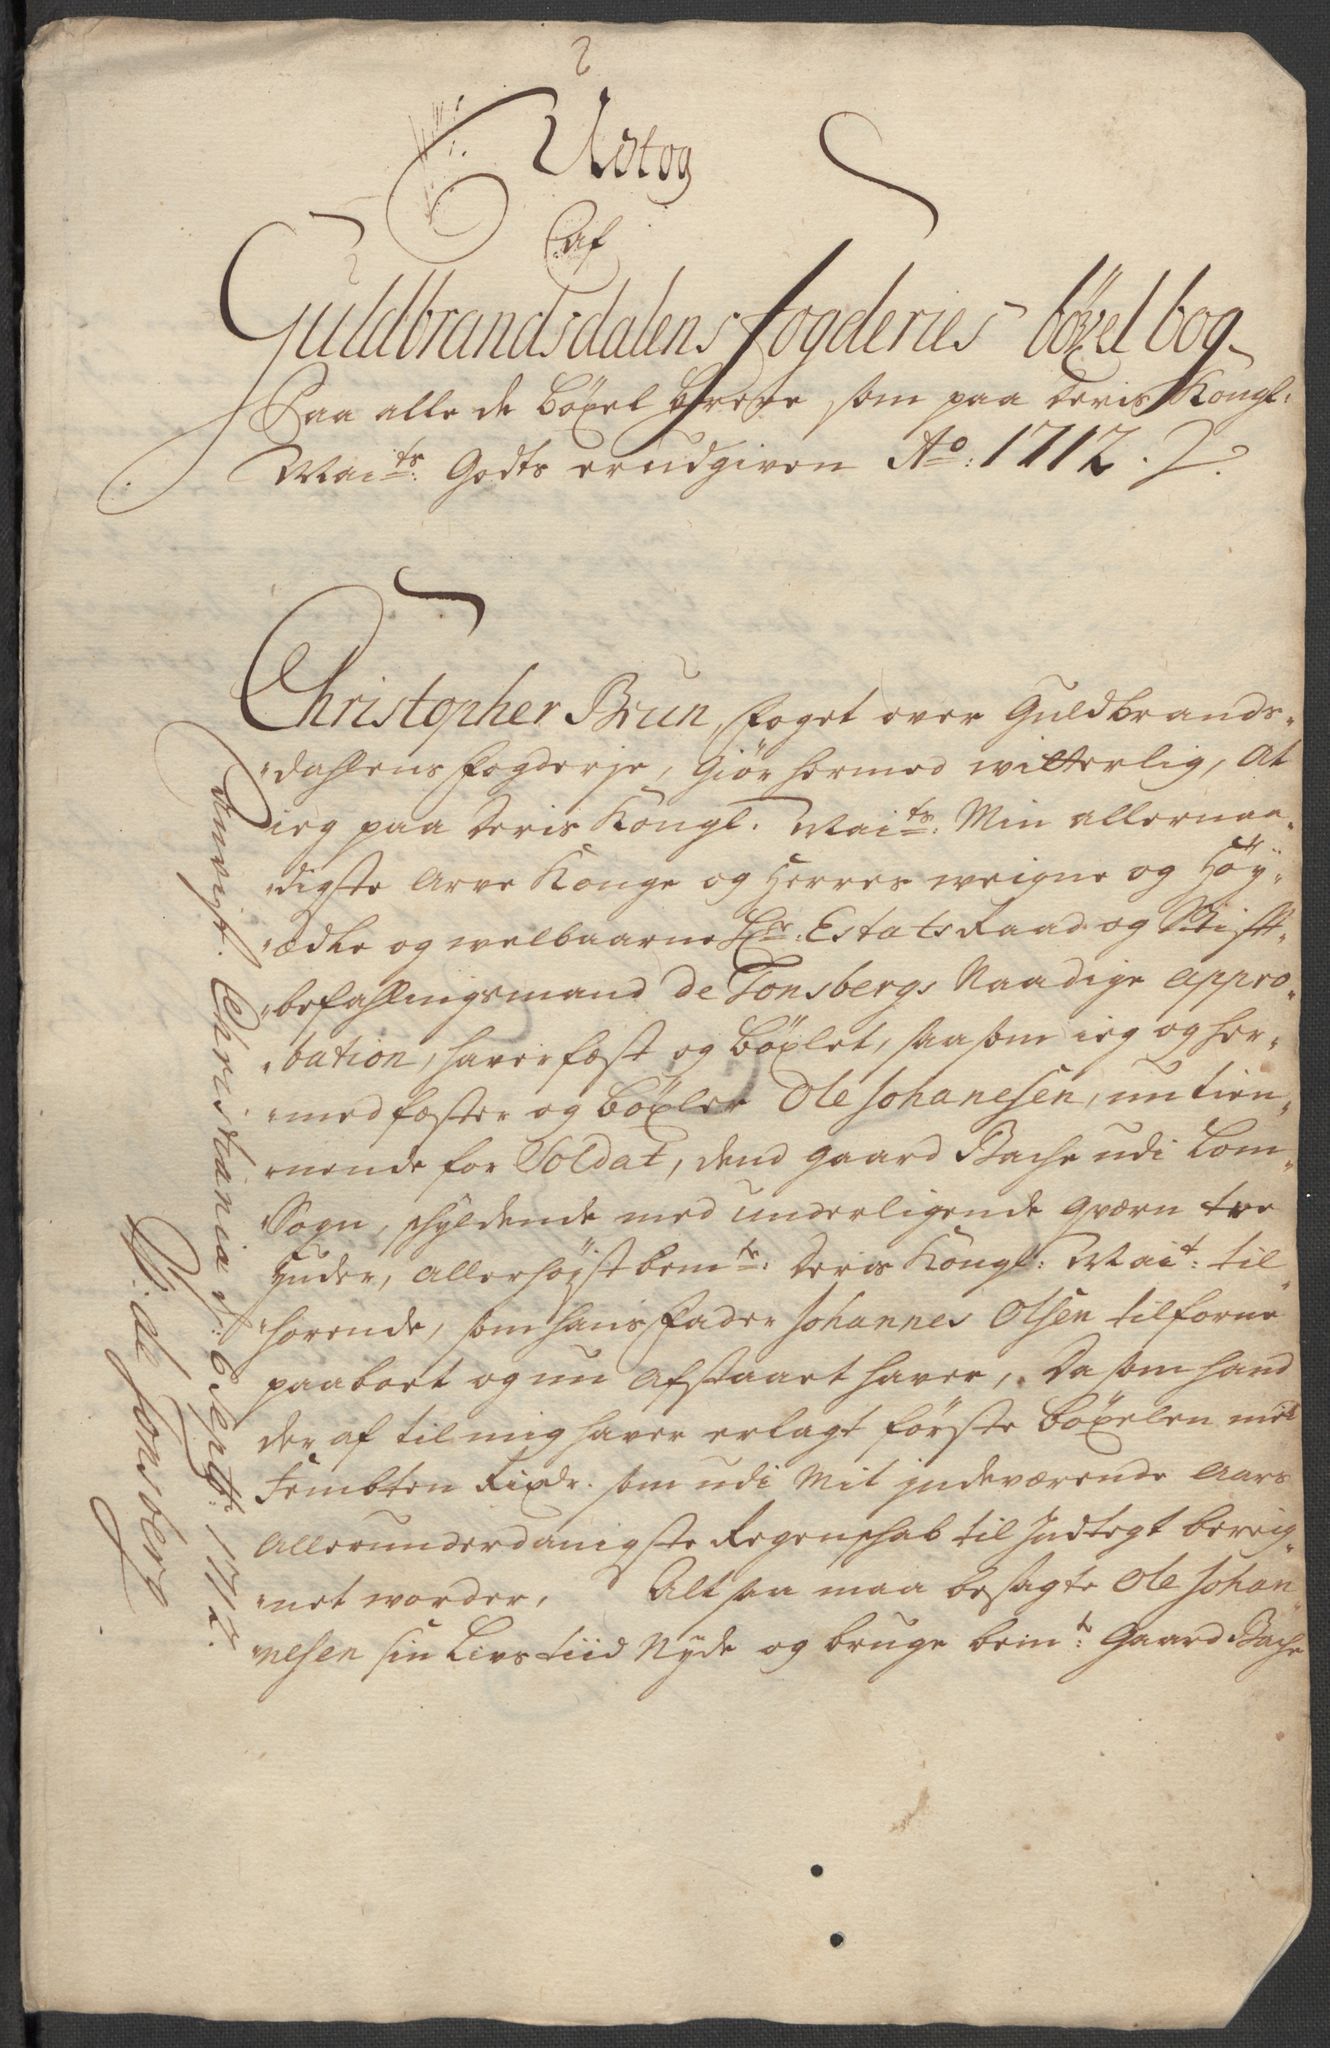 Udtog
af
Guldbrandsdalens fogderies böxel bog
Paa alle de böxel Breve som paa deris Kongl:
Mai^ts: Godts er udgiven A^o: 1712.
Christopher Brun, foget over Guldbrands-
dahlens fogderje, Giör hermed witterlig, At
ieg paa deris Kongl. Mai^ts: Min allernaa-
digste Arve Konge og Herres weigne og Höy-
ædle og welbaarne Hr: Estats Raad og Stift-
befahlingsmand de Tonsbergs Naadige appro-
bation, haver fæst og böxlet, saa som ieg og her-
med fæster og böxler Ole Johanesen, nu tien-
nende for Soldat, dend gaard Bache udi Lom-
Sogn, schyldende med underligende qværn tre
huder, allerhöyst bem^te: deris Kongl: Mai^t: til-
horende, som hans fader Johannes Olsen tilforne
paaboet og nu afstaaet haver, Da som hand
der af til mig haver erlagt förste böxelen med
Fembten Rixdr. som udi Mit jndeværende Aars
Allerunderdanigste Regenschab til Indtegt bereig-
net worder, Alt saa maa besagte Ole Johan-
nesen sin Livs tiid Nyde og bruge bem^te: Gaard Bache
Christiania d: 6 Septbr: 1712.
W: de Tonsberg